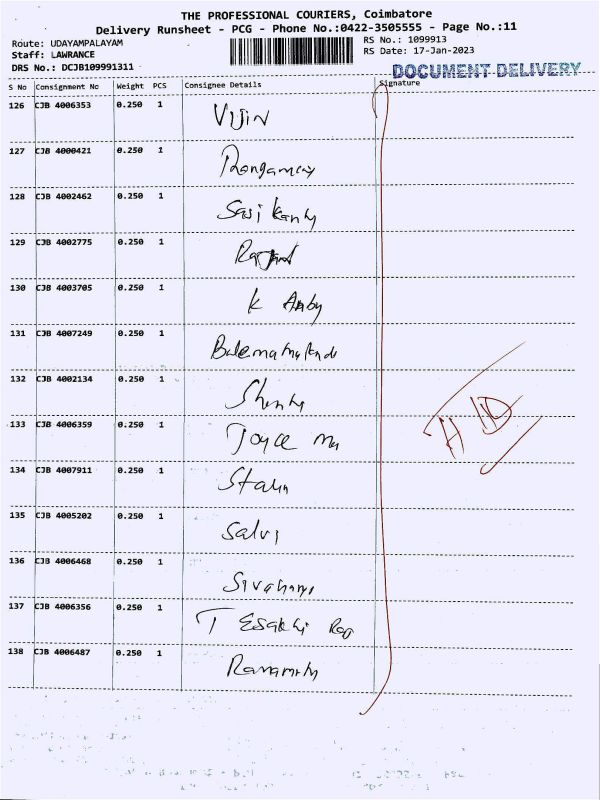 THE PROFESSIONAL COURIERS, Coimbatore
Delivery Runsheet - PCG - Phone No.:0422-3505555 - Page No.:11
Route: UDAYAMPALAYAM
Staff: LAWRANCE
DRS No.: DCJB109991311
RS No.: 1099913
RS Date: 17-Jan-2023
DOCUMENT DELIVERY
S No Consignment No Weight PCS Consignee Details Signature
126 CJB 4006353 0.250 1 Vijin
127 CJB 4000421 0.250 1
128 CJB 4002462 0.250 1
129 CJB 4002775 0.250 1
130 CJB 4003705 0.250 1 K
131 CJB 4007249 0.250 1
132 CJB 4002134 0.250 1
133 CJB 4006359 0.250 1 Joyce
134 CJB 4007911 0.250 1 Stalin
135 CJB 4005202 0.250 1 Salvi
136 CJB 4006468 0.250 1
137 CJB 4006356 0.250 1 T Esakki Raj
138 CJB 4006487 0.250 1